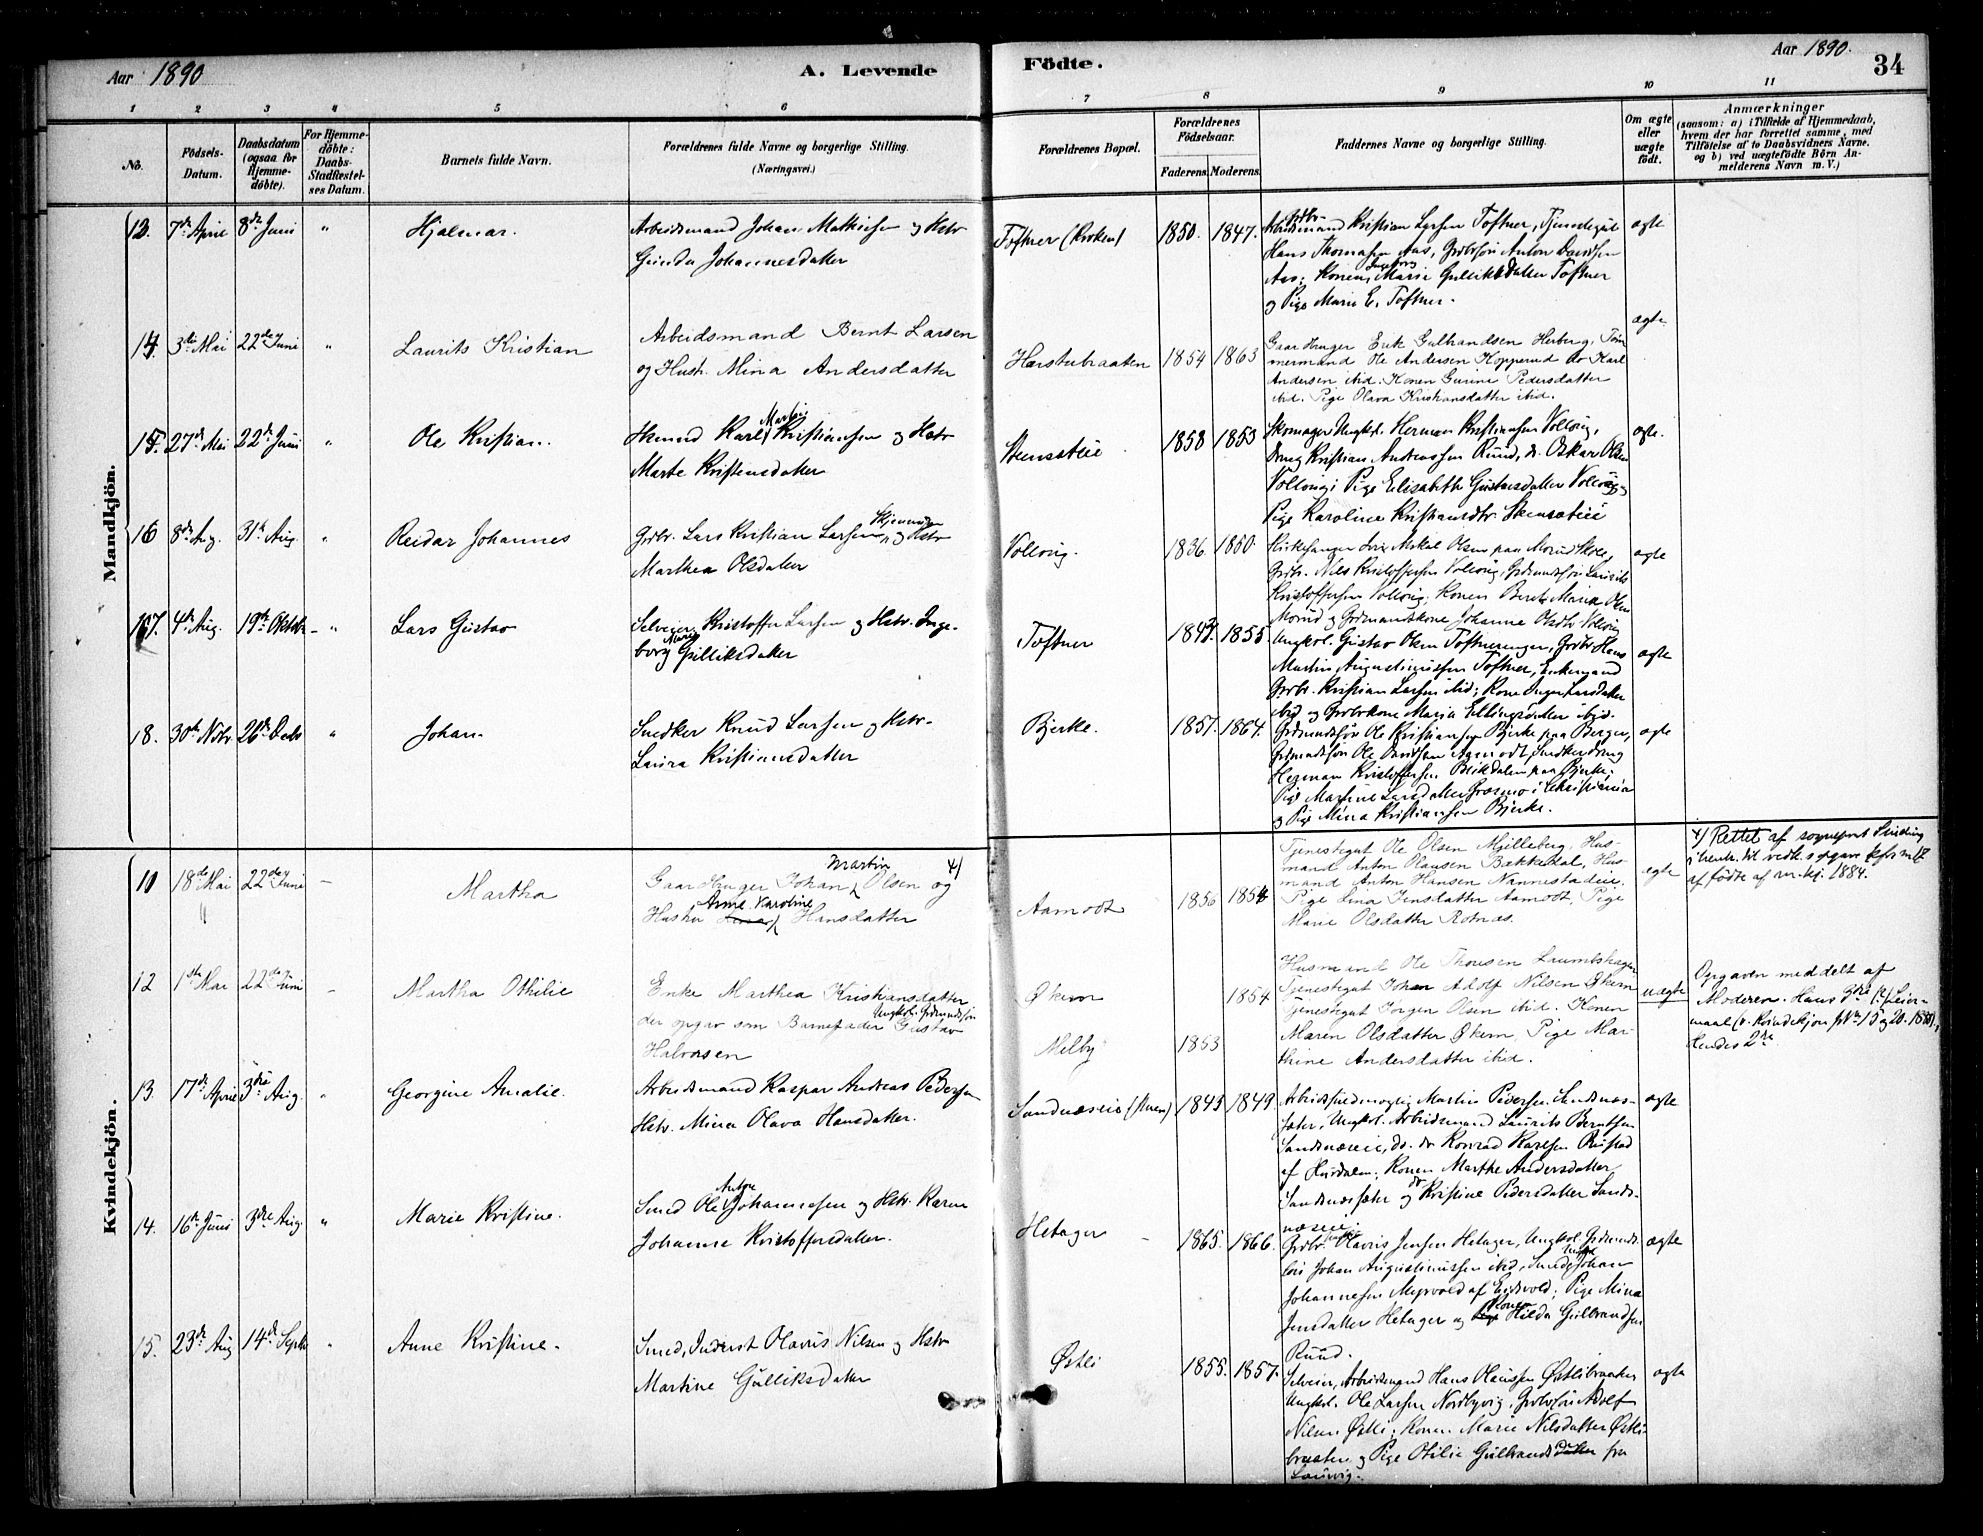 Aar 1890
A. Levende
Födte.
Aar 1890.
34
1 2 3 4 5 6 7 8 9 10 11
No.
Födsels-
Datum.
Daabsdatum
(ogsaa for
Hjemme-
döbte).
For Hjemme-
döbte:
Daabs-
Stadfæstel-
ses Datum.
Barnets fulde Navn.
Forældrenes fulde Navne og borgerlige Stilling.
(Næringsvei.)
Forældrenes Bopæl.
Forældrenes
Födselsaar.
Faderens. Moderens.
Faddernes Navne og borgerlige Stilling.
Om ægte
eller
uægte
födt.
Anmærkninger
(saasom: a) i Tilfælde af Hjemmedaab,
hvem der har forrettet samme, med
Tilföielse af to Daabsvidners Navne.
og b) ved uægtefödte Börn An-
melderens Navn m. V.)
Mandkjön.
13. 7de April 8de Juni " Hjalmar.
Arbeidsmand Johan Mathisen og Hstr
Gunda Johannesdatter
Toftner (Kroken) 1850. 1847.
Arbeidsmand Kristian Larsen Toftner, Tjenestegut
Hans Thomasen Aas, Grdbrsøn Anton Davidsen
Aas; Konen Ingeborg Marie Gulliksdatter Toftner
og Pige Marie E. Toftner.
ægte
14. 3die Mai 22de Juni " Laurits Kristian
Arbeidsmand Bernt Larsen
og Hust. Mina Andersdatter
1854 1863
Gaardbruger Erik Gulbrandsen Herberg, Töm
mermand Ole Andersen Kopperud do Karl
Andersen ibid. Konen Gurine Pedersdatter
ibid. Pige Olava Kristiansdatter ibid.
ægte
15. 27de Mai 22de Juni " Ole Kristian.
Husmd Karl Martin Kristiansen og Hstr
Marte Kristensdatter
Stensateie 1858 1853
Skomager Ungkl. Herman Kristiansen Vollaug,
Dreng Kristian Andreassen Ruud, do. Oskar Olsen
Pige Elisabeth Gustavsdatter
Pige Karoline Kristiansdtr. Stensateie
ægte.
16 8de Aug. 31te Aug. " Reidar Johannes
Grdbr. Lars Kristian Larsen og Hstr
Marthea Olsdatter
1836. 1850.
Kirkesanger Olsen paa Morud Skole,
Grdbr. Nils Kristoffersen Laurits
Kristoffersen Konen Berte Maria Olsen
Morud og Grdmandskone Johanne Olsdtr
ægte
17. 4de Aug. 19de Oktobr " Lars Gustav
Selveier Kristoffer Larsen og Hstr. Inge-
borg Marie Gulliksdatter
Toftner 1855
Ungkrl. Gustav Olsen Toftnerenger, Grdbr. Hans
Martin Augustinussen Toftner, Enkemand
Grdbr. Kristian Larsen ibid; Kone Inger Larsdatter
ibid og Grdbrkone Maria Ellingsdatter ibid.
ægte
18. 30te Novbr 26de Decbr " Johan.
Snedker Knud Larsen og Hstr.
Laura Kristiansdatter
Bjerke. 1857. 1864.
Grdmandssön Ole Kristiansen Bjerke paa Berger,
Grdmandssön Ole Davidsen Snedkerdreng
Herman Kristoffersen paa Bjerke;
Pige Martine Larsdatter i Christiania
og Pige Mina Kristiansen Bjerke.
ægte
Kvindekjön.
10 18de Mai 22de Juni – Martha
Gaardbruger Johan Martin Olsen og 4)
Hustru Anne Karoline Hansdatter
Aamodt 1856 1854
Tjenestegut Ole Olsen Mjilleberg, Hus-
mand Anton Olausen Bækkedal, Hus-
mand Anton Hansen Nannestadeie.
Pige Lina Jensdatter Aamodt, Pige
Marie Olsdatter Rotnæs.
ægte
4) Rettet af sogneprest Sinding
af fødte af m. kj. 1884.
12 1ste Mar 22de Juni – Martha Othilie
Enke Marthea Kristiansdatter
der opgav som Barnefader Ungkrl. Grdmandssøn Gustav
Halvorsen
Økern 1854
Melby 1853
Husmand Ole Thorsen
Tjenestegut Johan Adolf Nilsen Økern
Tjenestegut Jörgen Olsen ibid. Konen
Maren Olsdatter Økern, Pige Mar-
thine Andersdatter ibid.
uægte
Opgaven meddelt af
Moderen. Hans 3die (?) Leier-
maal
Hendes 2det
13. 17de April 3die Aug. " Georgine Amalie.
Arbeidsmand Kaspar Andreas Pedersen
Hstr. Mina Olava Hansdatter.
1849
Martin Pedersen Sandnæs-
sæter, Ungkrl. Arbeidsmand Laurits Berntsen
Sandnæseie, do. do Konrad Karlsen
af Hurdalen; Konen Marthe Andersdatter
Sandnæssæter og do Kristine Pedersdatter Sand-
næseie.
ægte
14. 16de Juni 3die Aug. " Marie Kristine.
Smed Ole Anton Johannesen og Hstr Karen
Johanne Kristoffersdatter.
Hetager 1865. 1866.
Grdbr. Olavus Jensen Hetager, Ungkrl. Grdmands-
sön Johan Augustinussen ibid, Smed Johan
Johannesen Myrvold af Eidsvold; Pige Mina
Jensdatter Hetager og Konen Hilda Gulbrandsen
Ruud.
ægte
15. 23de Aug 14de Septbr " Anne Kristine.
Smed, Inderst Olavus Nilsen og Hstr
Martine Gulliksdatter
Østli 1855. 1857.
Selveier, Arbeidsmand Hans Olaussen Østlibraaten
Ungkrl. Ole Larsen Nordbyvig, Grdbrsön Adolf
Nilsen Østli; Konen Marie Nilsdatter Østli-
braaten og Pige Otilie Gulbrandsdatter fra
ægte